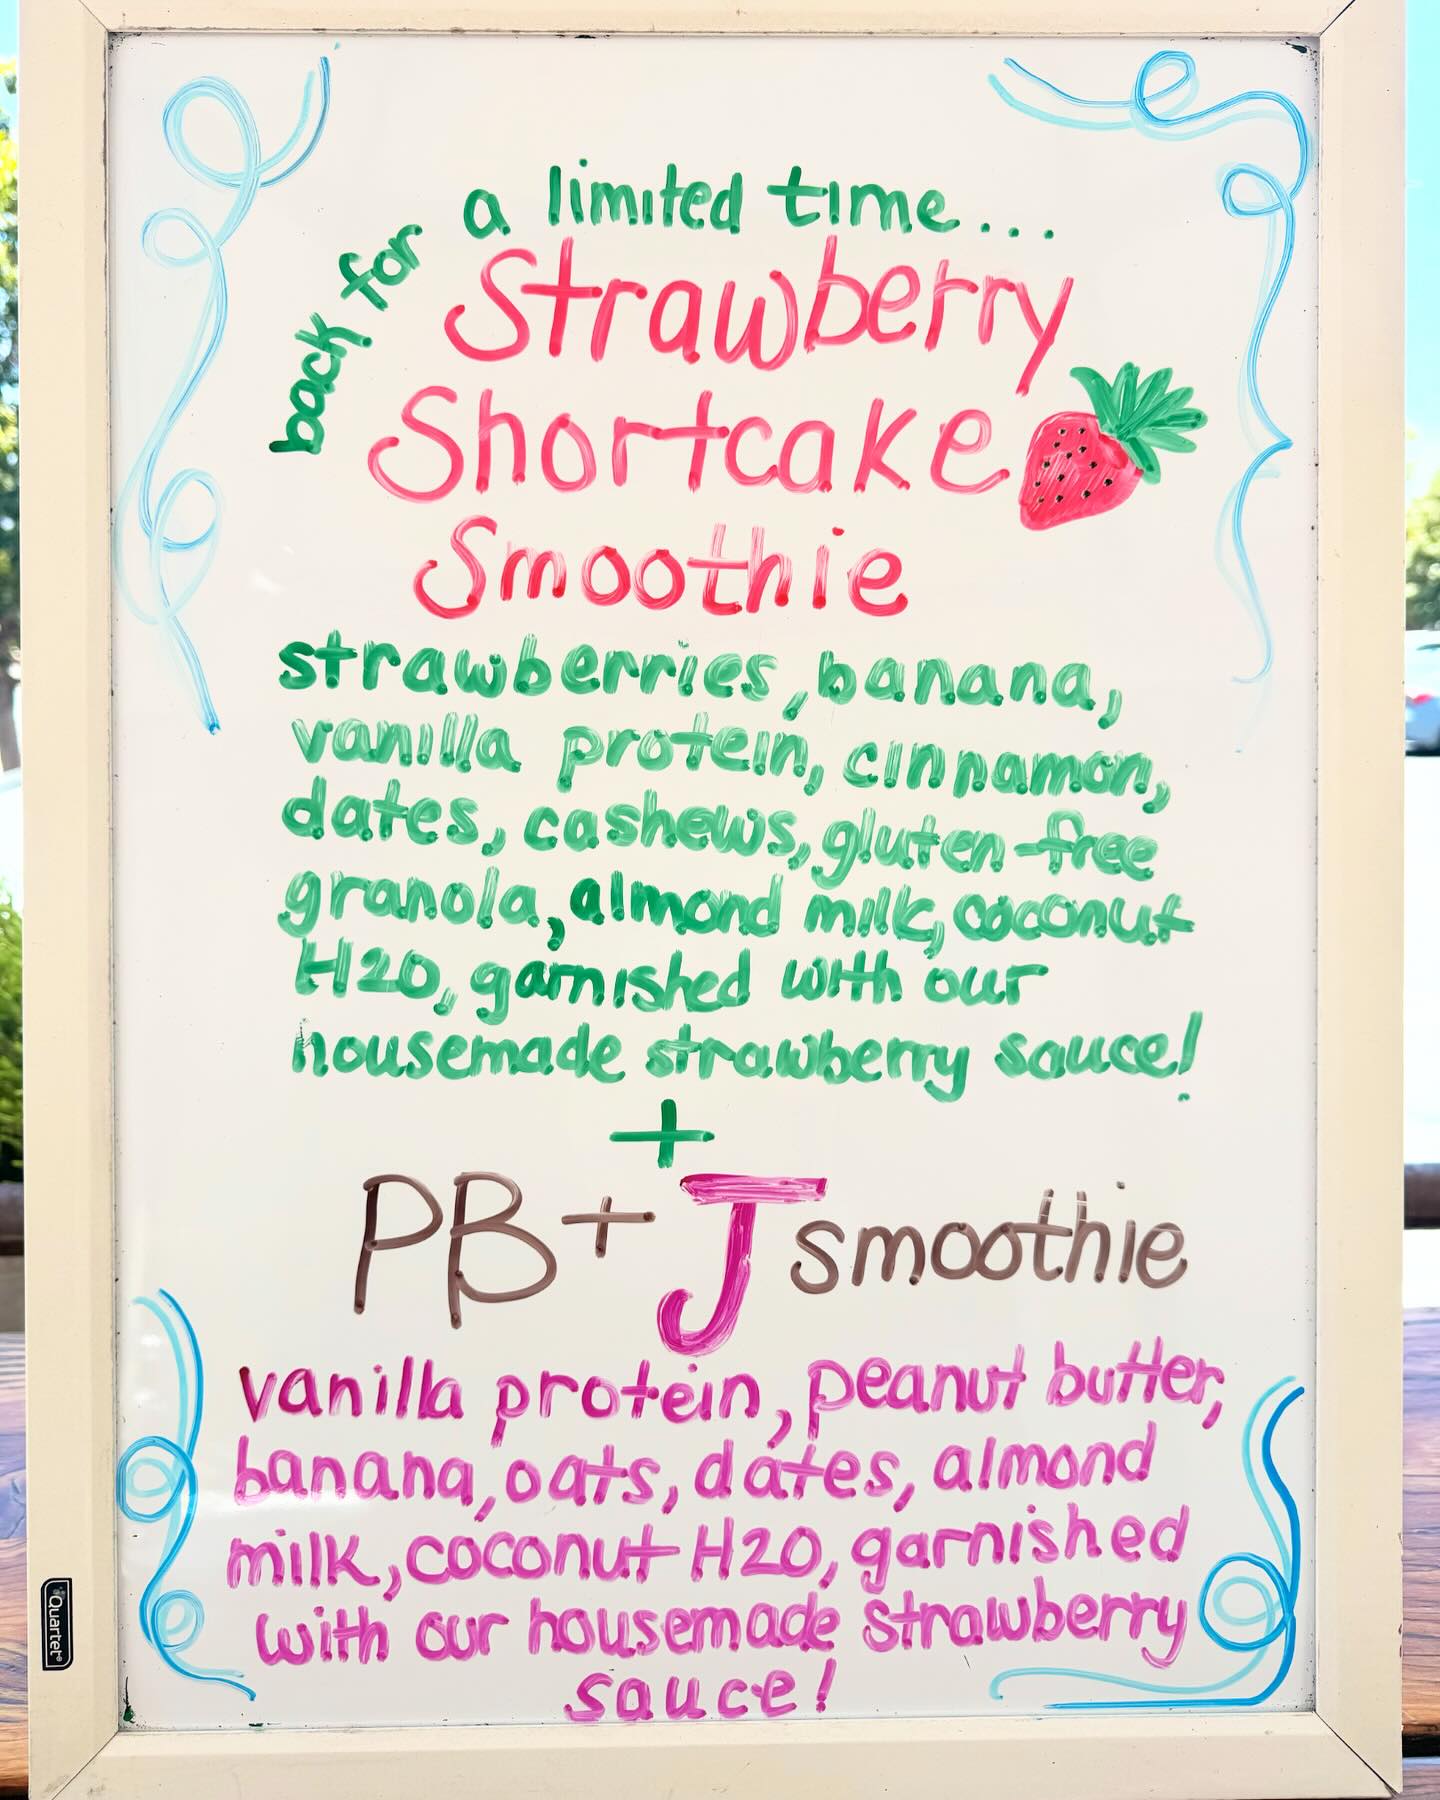 back for a limited time...
Strawberry
Shortcake
Smoothie
strawberries, banana,
vanilla protein, cinnamon,
dates, cashews, gluten-free
granola, almond milk, coconut
H2O, garnished with our
housemade strawberry sauce!
+
PB+J smoothie
vanilla protein, peanut butter,
banana, oats, dates, almond
milk, coconut H2O, garnished
with our housemade strawberry
sauce!
Quartet®